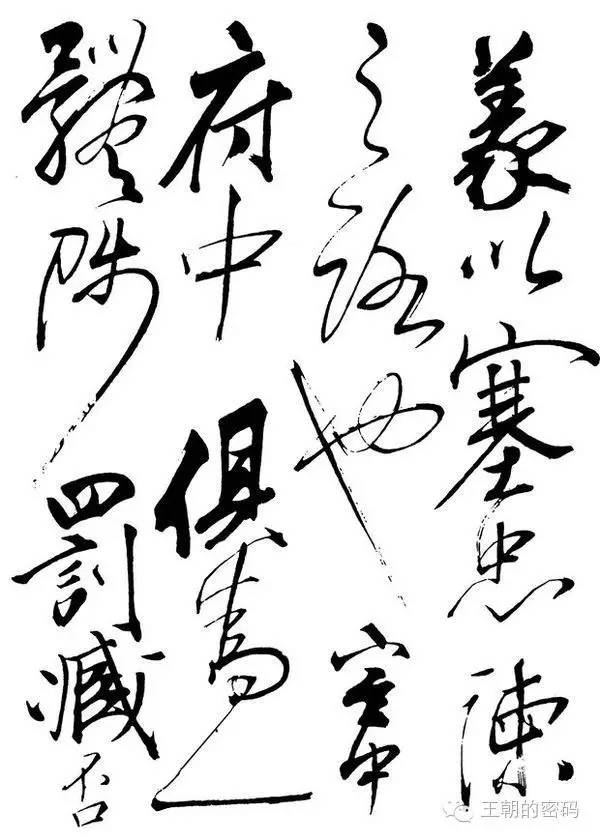 義以塞忠諫
之路也宮中
府中俱為一
體陟罰臧否
王朝的密码